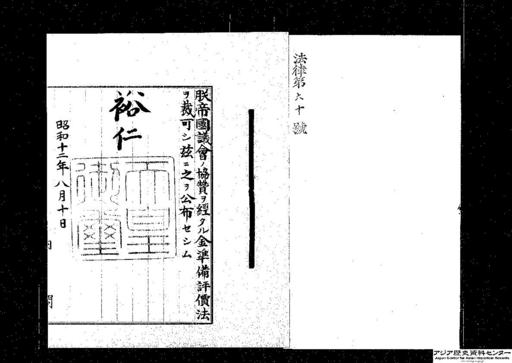 法律第六十號
朕帝國議會ノ協贊ヲ經タル金準備評價法
ヲ裁可シ茲ニ之ヲ公布セシム
裕仁
天皇御璽
昭和十二年八月十日
アジア歴史資料センター
Japan Center for Asian Historical Records